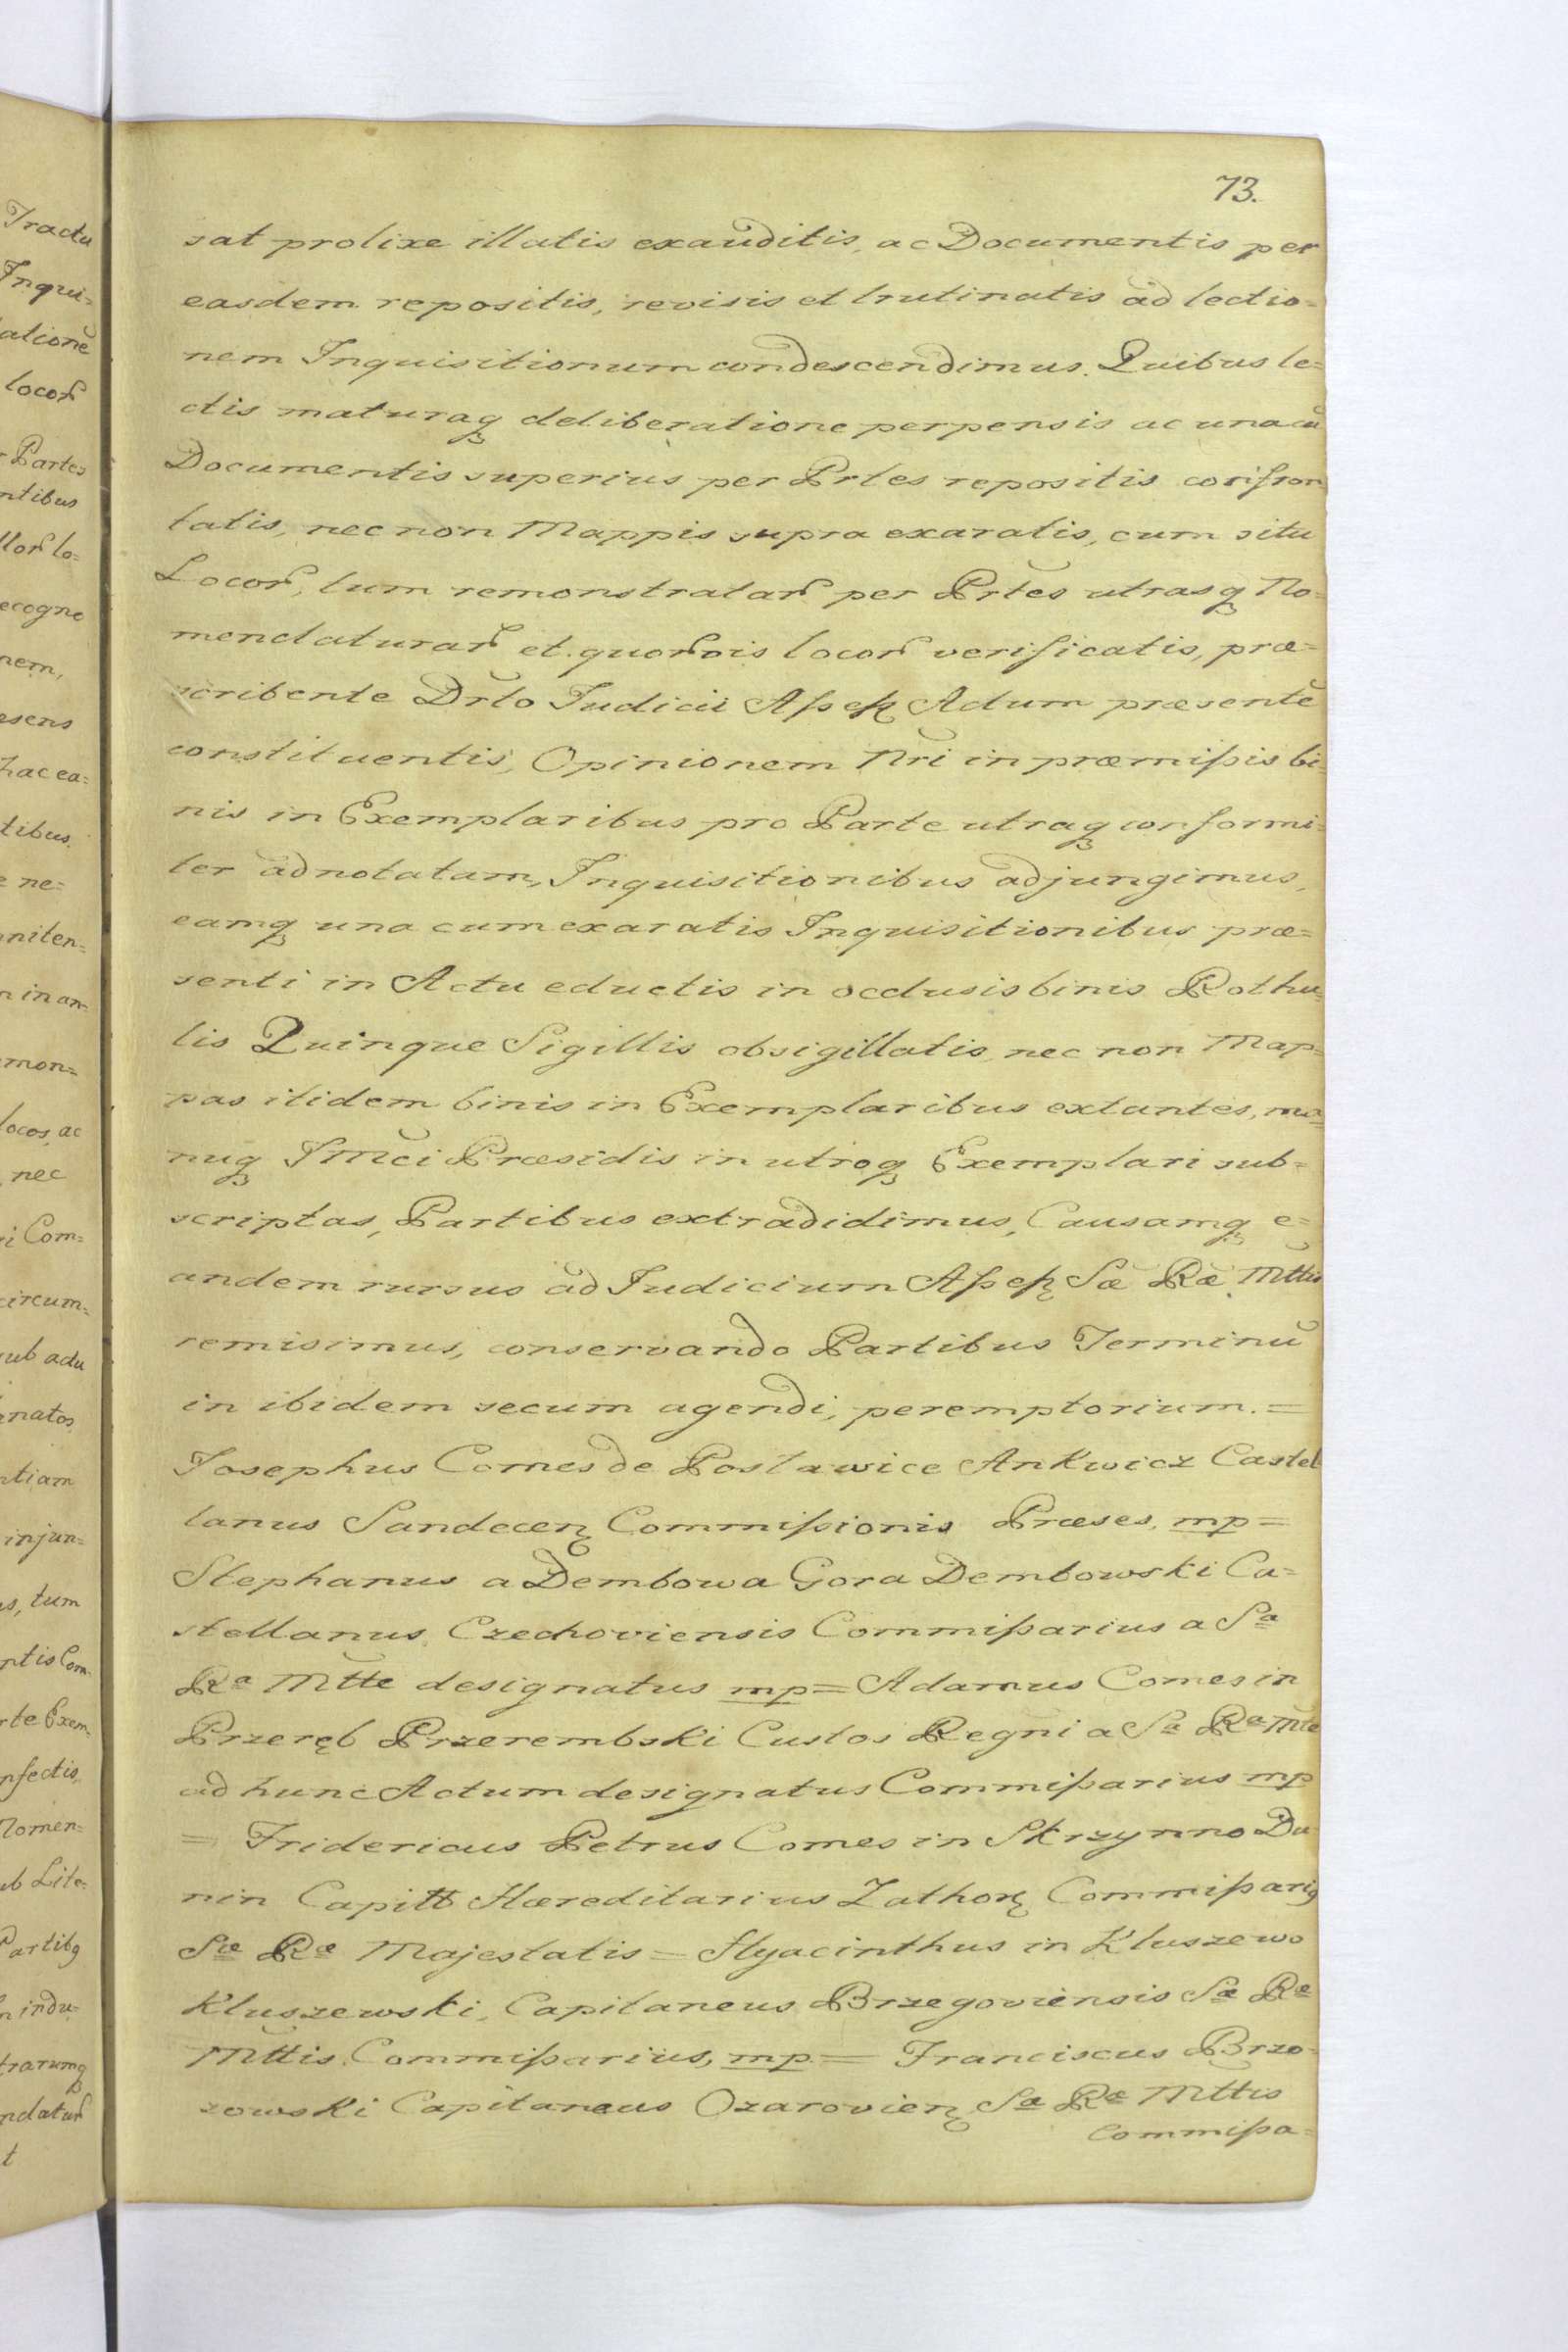 73.
sat prolixe illatis exauditis, ac Documentis per
easdem repositis, revisis et trutinatis ad lectio=
nem Inquisitionum condescendimus. Quibus le=
ctis maturaq deliberatione perpensis ac una cũ
Documentis superius per Prtes repositis confron
tatis, nec non Mappis supra exaratis, cum situ
Locor, tum remonstratar per Prtes utrasq No=
menclaturar et quorvis locor verificatis, præ=
scribente Drto Judicii Assess Actum præsentẽ
constituentis, Opinionem Nri in præmissis bi=
nis in Exemplaribus pro Parte utraq conformi=
ter adnotatam, Inquisitionibus adjungimus,
eamq una cum exaratis Inquisitionibus præ=
senti in Actu eductis in occlusis binis Rothu=
lis Quinque Sigillis obsigillatis, nec non Map=
pas itidem binis in Exemplaribus extantes, ma=
nuq Jmci Præsidis in utroq Exemplari sub=
scriptas, Partibus extradidimus, Causamq e=
andem rursus ad Judicium Assess Sæ Ræ Mttis
remisimus, conservando Partibus Terminũ
in ibidem secum agendi, peremptorium. =
Josephus Comes de Poslawice Ankwicz Castel
lanus Sandecen Commissionis Præses, mp =
Stephanus a Dembowa Gora Dembowski Ca=
stellanus Czechoviensis Commissarius a Sa
Ra Mtte designatus mp = Adamus Comes in
Przeręb Przerembski Custos Regni a Sa Ra Mtte
ad hunc Actum designatus Commissarius mp
= Fridericus Petrus Comes in Skrzynno Du
nin Capitt Hæreditarius Zathor Commissariq
Sæ Ræ Majestatis = Hyacinthus in Kluszewo
Kluszewski, Capitaneus Brzegoviensis Sæ Ræ
Mttis Commissarius, mp = Franciscus Brzo=
zowski Capitaneus Ozarovien Sæ Ræ Mttis
Commissa=